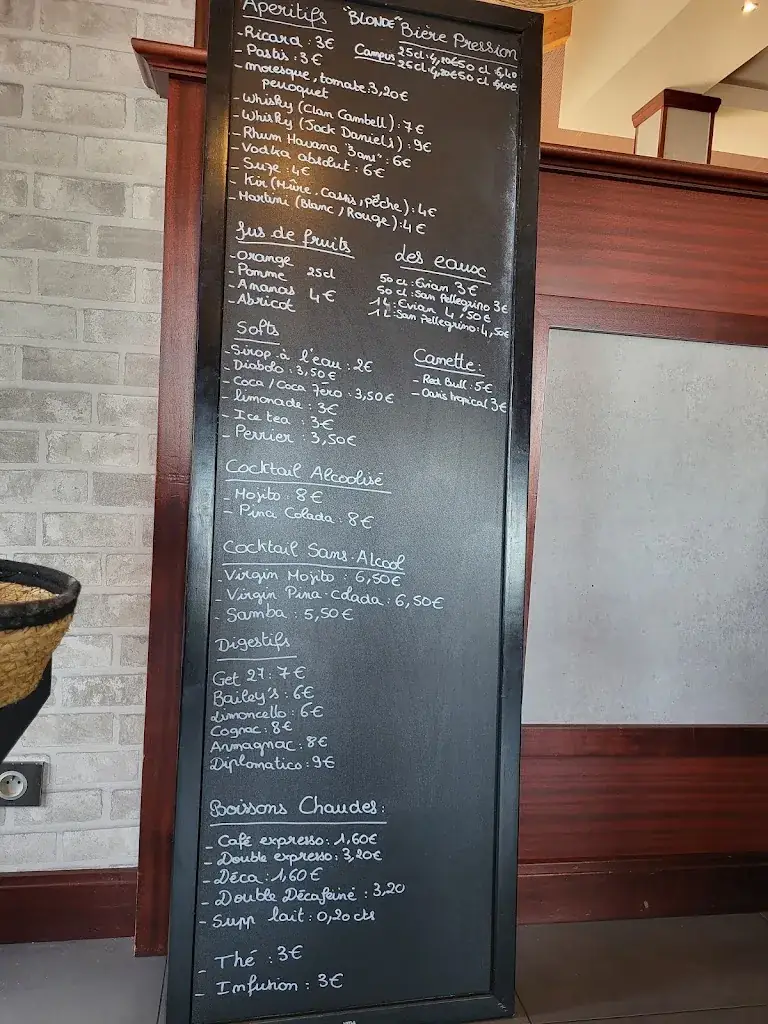 Aperitifs
"BLONDE" Bière Pression
Campus 25cl.4,20€ 50 cl 6,40
25cl.4,20€ 50 cl 6,40€
- Ricard : 3€
- Pastis : 3€
- moresque, tomate : 3,20€
perroquet
- Whisky (Clan Cambell) : 7€
- Whisky (Jack Daniel's) : 9€
- Rhum Havana "3 ans" : 6€
- Vodka absolut : 6€
- Suze : 4€
- Kir (Mûre, Cassis, Pêche) : 4€
- Martini (Blanc / Rouge) : 4€
Jus de fruits
- Orange
- Pomme 25cl
- Ananas 4€
- Abricot
des eaux
50 cl : Evian 3€
50 cl : San Pellegrino 3€
1L : Evian 4,50€
1L : San Pellegrino : 4,50€
Softs
- Sirop à l'eau : 2€
- Diabolo : 3,50€
- Coca / Coca Zéro : 3,50€
- limonade : 3€
- Ice tea : 3€
- Perrier : 3,50€
Canette :
- Red Bull : 5€
- Oasis tropical 3€
Cocktail Alcoolisé
- Mojito : 8€
- Pina Colada : 8€
Cocktail Sans Alcool
- Virgin Mojito : 6,50€
- Virgin Pina-Colada : 6,50€
- Samba : 5,50€
Digestifs
Get 27 : 7€
Bailey's : 6€
Limoncello : 6€
Cognac : 8€
Armagnac : 8€
Diplomatico : 9€
Boissons Chaudes :
- Café expresso : 1,60€
- Double expresso : 3,20€
- Déca : 1,60€
- Double Décafeiné : 3,20
- Supp lait : 0,20 cts
- Thé : 3€
- Infusion : 3€